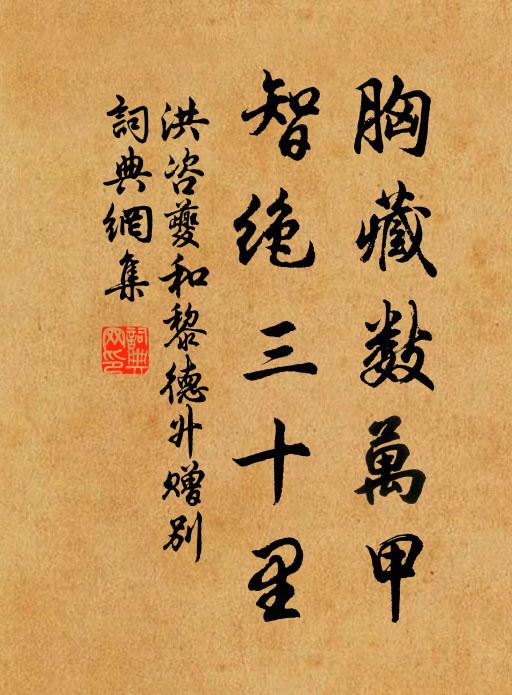 胸藏数萬甲
智绝三十里
洪咨夔和黎德升赠别
詞典網集
詞典
网印